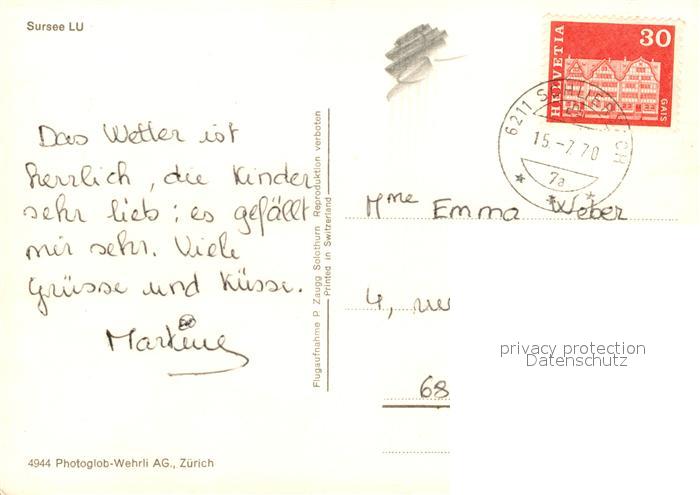 Sursee LU
HELVETIA
30
GAIS
6211
15.-7.70
7a
Das Wetter ist
herrlich, die Kinder
sehr lieb; es gefällt
mir sehr. Viele
Grüsse und Küsse.
Martine
Flugaufnahme P. Zaugg Solothurn Reproduktion verboten
Printed in Switzerland
Mme Emma Weber
4, rue
68
privacy protection
Datenschutz
4944 Photoglob-Wehrli AG., Zürich